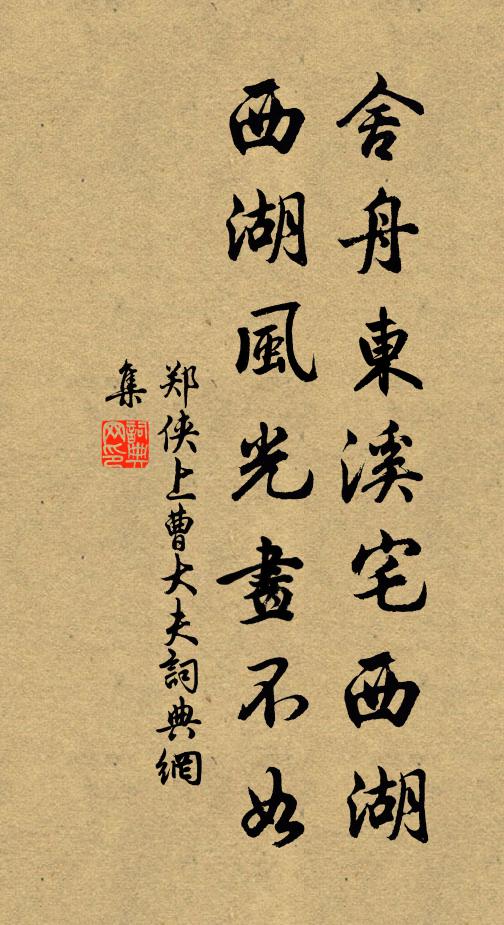 舍舟東溪宅西湖
西湖風光畫不如
郑侠上曹大夫詞典網
集
詞典
网印